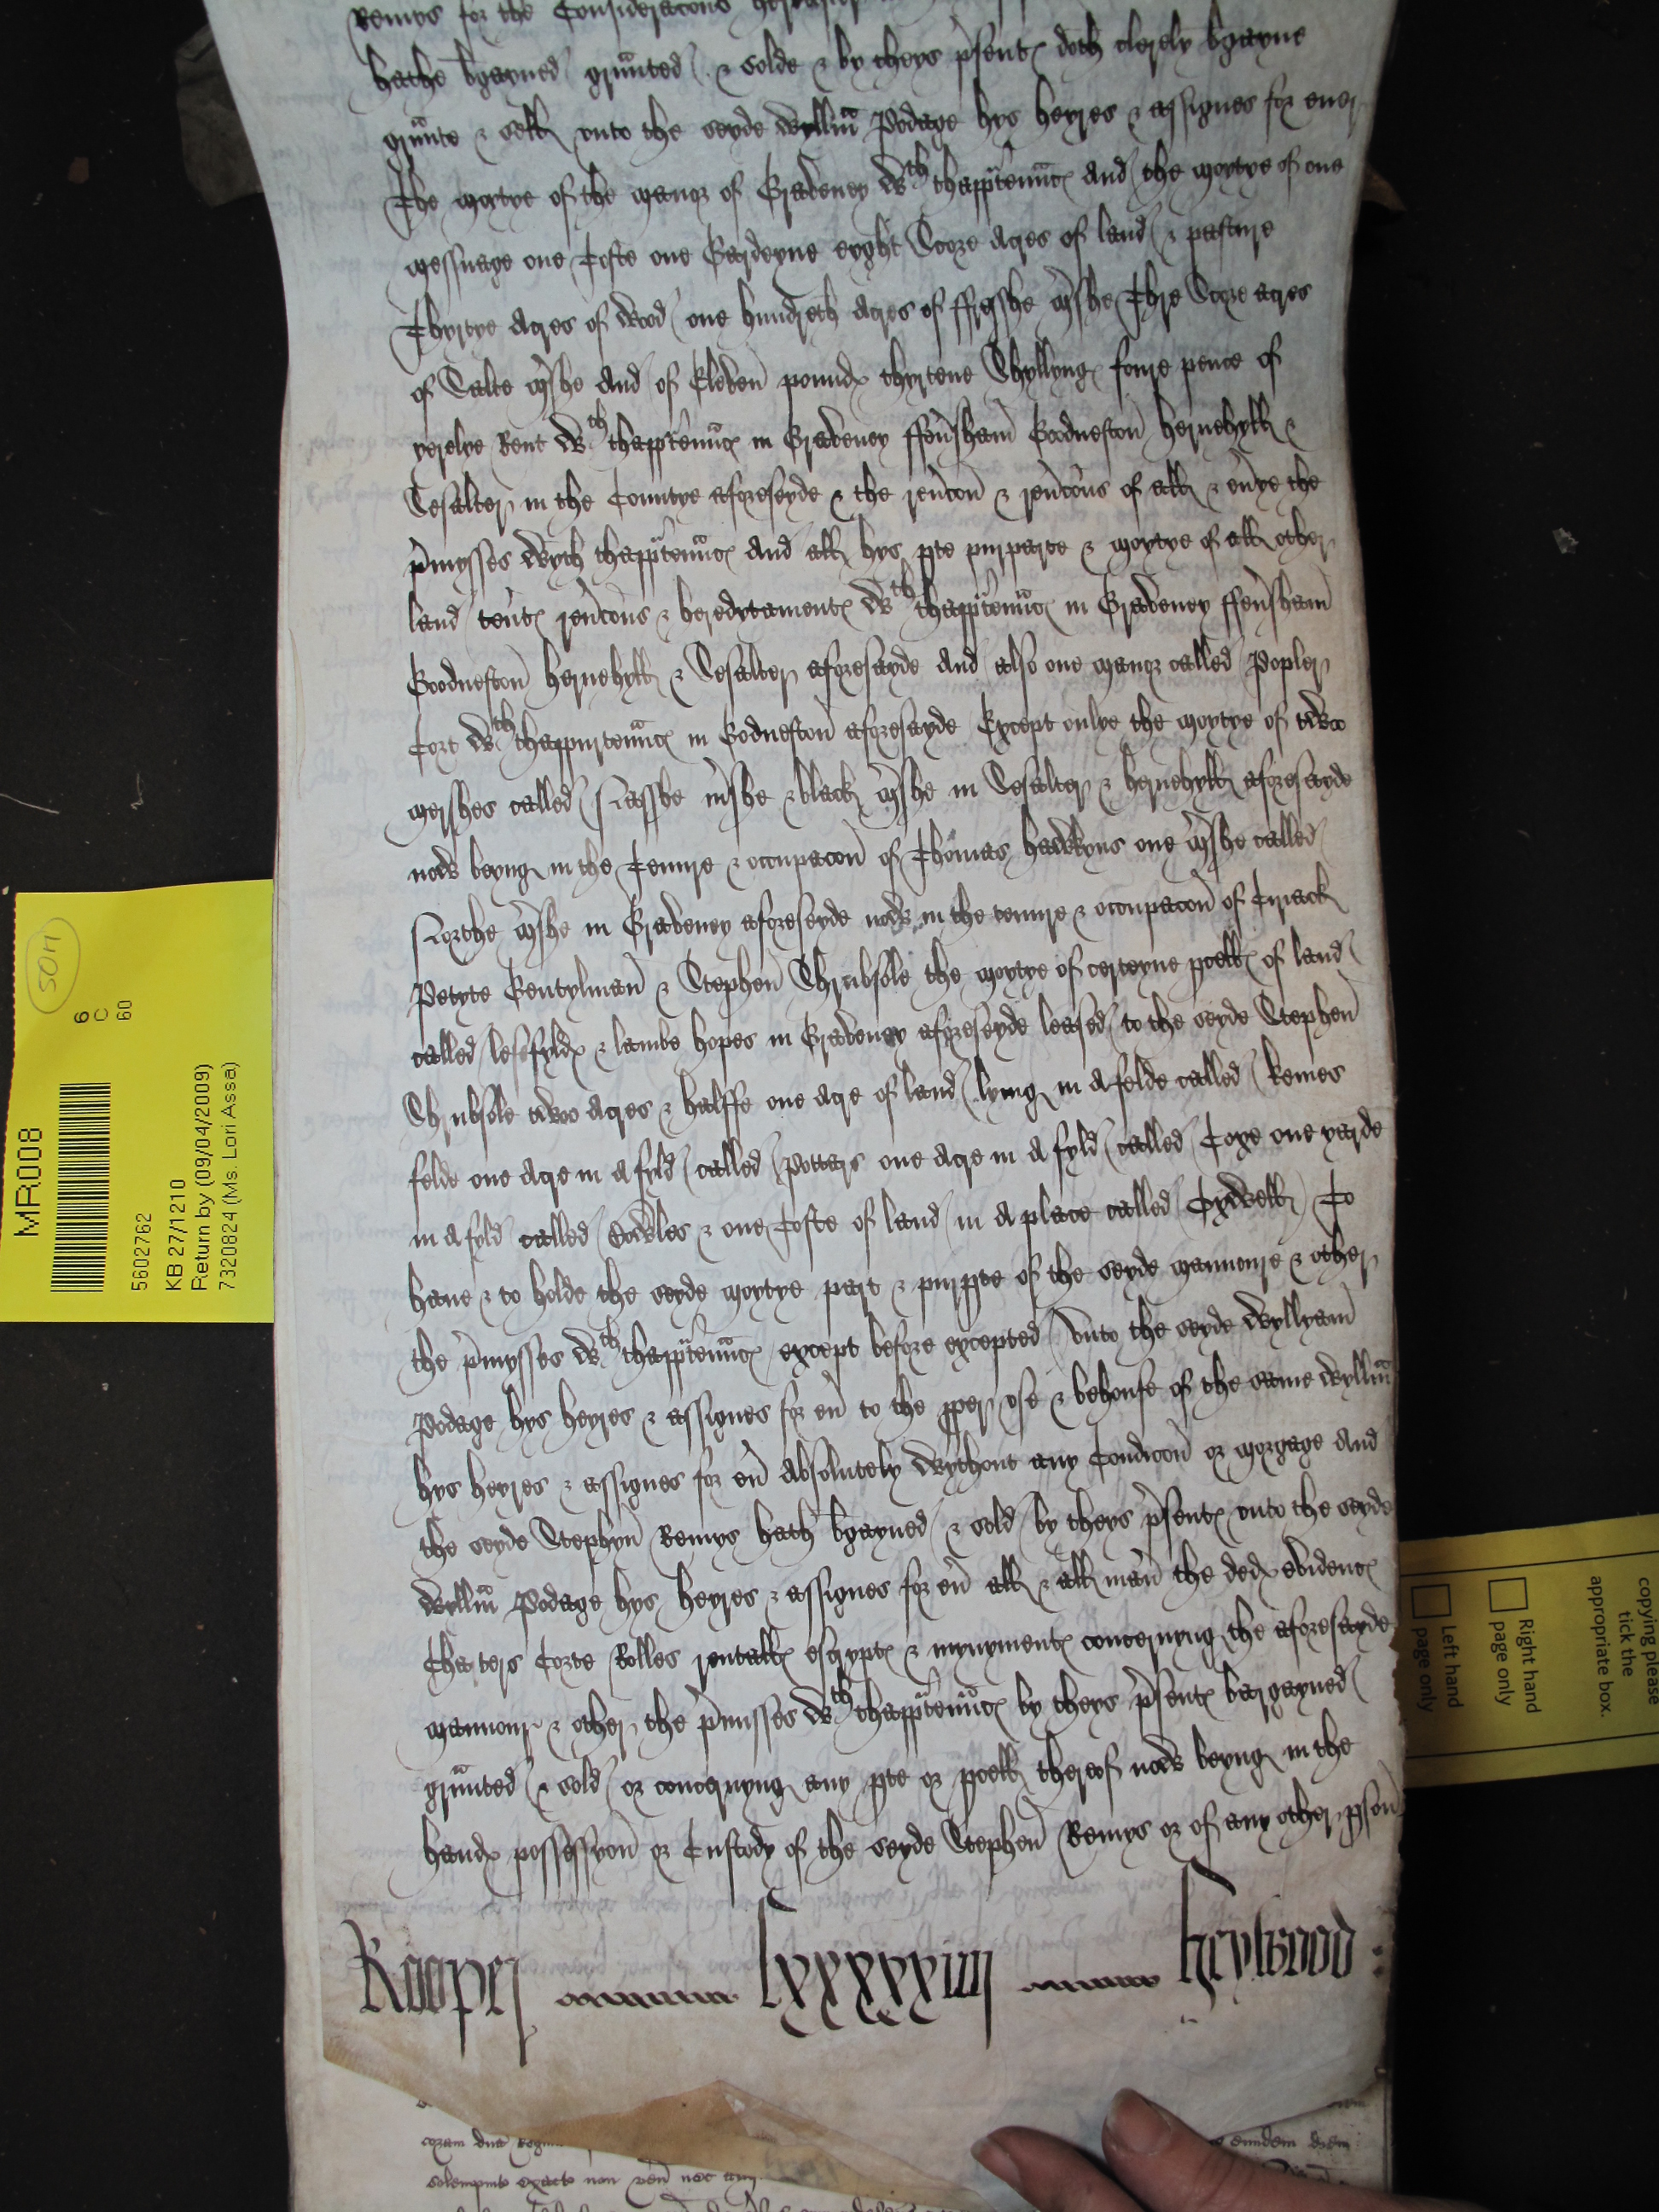 Remys for the Consideracons
hathe bgayned grunted & solde & by theys psent doth clerely bgayne
grunte & sell unto the seyde Wyllm Podage hys heyres & assignes for ever
The moytye of the manor of Graveney Wth thapptennc And the moytye of one
messuage one Tofte one Gardeyne eyght Score Acres of land & pasture
Thyrtye Acres of Wood one hundreth Acres of ffresshe mshe Thre Score acres
of Salte mshe And of Eleven pound thyrtene Shyllyng foure pence of
yerelye Rent Wth thapptennc in Graveney ffevsham Goodneston hernehyll &
Cesalter in the Countye aforeseyde & the revcon & revcons of all & evye the
pmysses Wyth thapptennc And all hys pte purparte & moytye of all other
land tent revcons & heredytament Wth thapptennc in Graveney ffevsham
Goodneston hernehyll & Cesalter aforesayde And also one manor called Popler
Cort Wth thappurtennc in Godneston aforesayde Except onlye the moytye of two
mershes called Nasshe mshe & black mshe in Cesalter & hernehyll aforesayde
now beyng in the Tenure & occupacon of Thomas hawkyns one mshe called
Northe mshe in Graveney aforeseyde now in the tenure & occupacon of Criack
Petyte Gentylman & Stephen Shrubsole the moytye of certeyne pcell of land
called lesefyld & lambe hopes in Graveney aforeseyde leased to the seyde Stephen
Shrubsole two Acres & halffe one Acre of land lyeng in A felde called Remes
felde one Acre in A fyld called Potters one Acre in A fyld called Coxe one yarde
in A fyld called Cowles & one Tofte of land in A place called Cxwell To
have & to holde the seyde moytye part & purpte of the seyde mannoure & other
the pmysses Wth thapptennc except before excepted Unto the seyde Wyllyam
Podage hys heyres & assignes for ev to the pper use & behoufe of the same Wyllm
hys heyres & assignes for ev Absolutely Wythout any Condicon or morgage And
the seyde Stephyn Remys hath bgayned & sold by theys psent unto the seyde
Wyllm Podage hys heyres & assignes for ev all & all man the ded evidenc
Charters Corte Rolles rentall escrypt & mynyment concernyng the aforesayde
mannour & other the pmisses Wth thapptennc by theys psent bargayned
grunted & sold or concernyng any pte or pcell thereof now beyng in the
hand possessyon or Custody of the seyde Stephen Remys or of any other pson
Rooper lxxxxxiiij heywood
coram dno Regin
eundem diem
solempnit exact non ven nec
MR008
SON
6
C
60
5602762
KB 27/1210
Return by (09/04/2009)
7320824 (Ms. Lori Assa)
copying please
tick the
appropriate box.
Right hand
page only
Left hand
page only